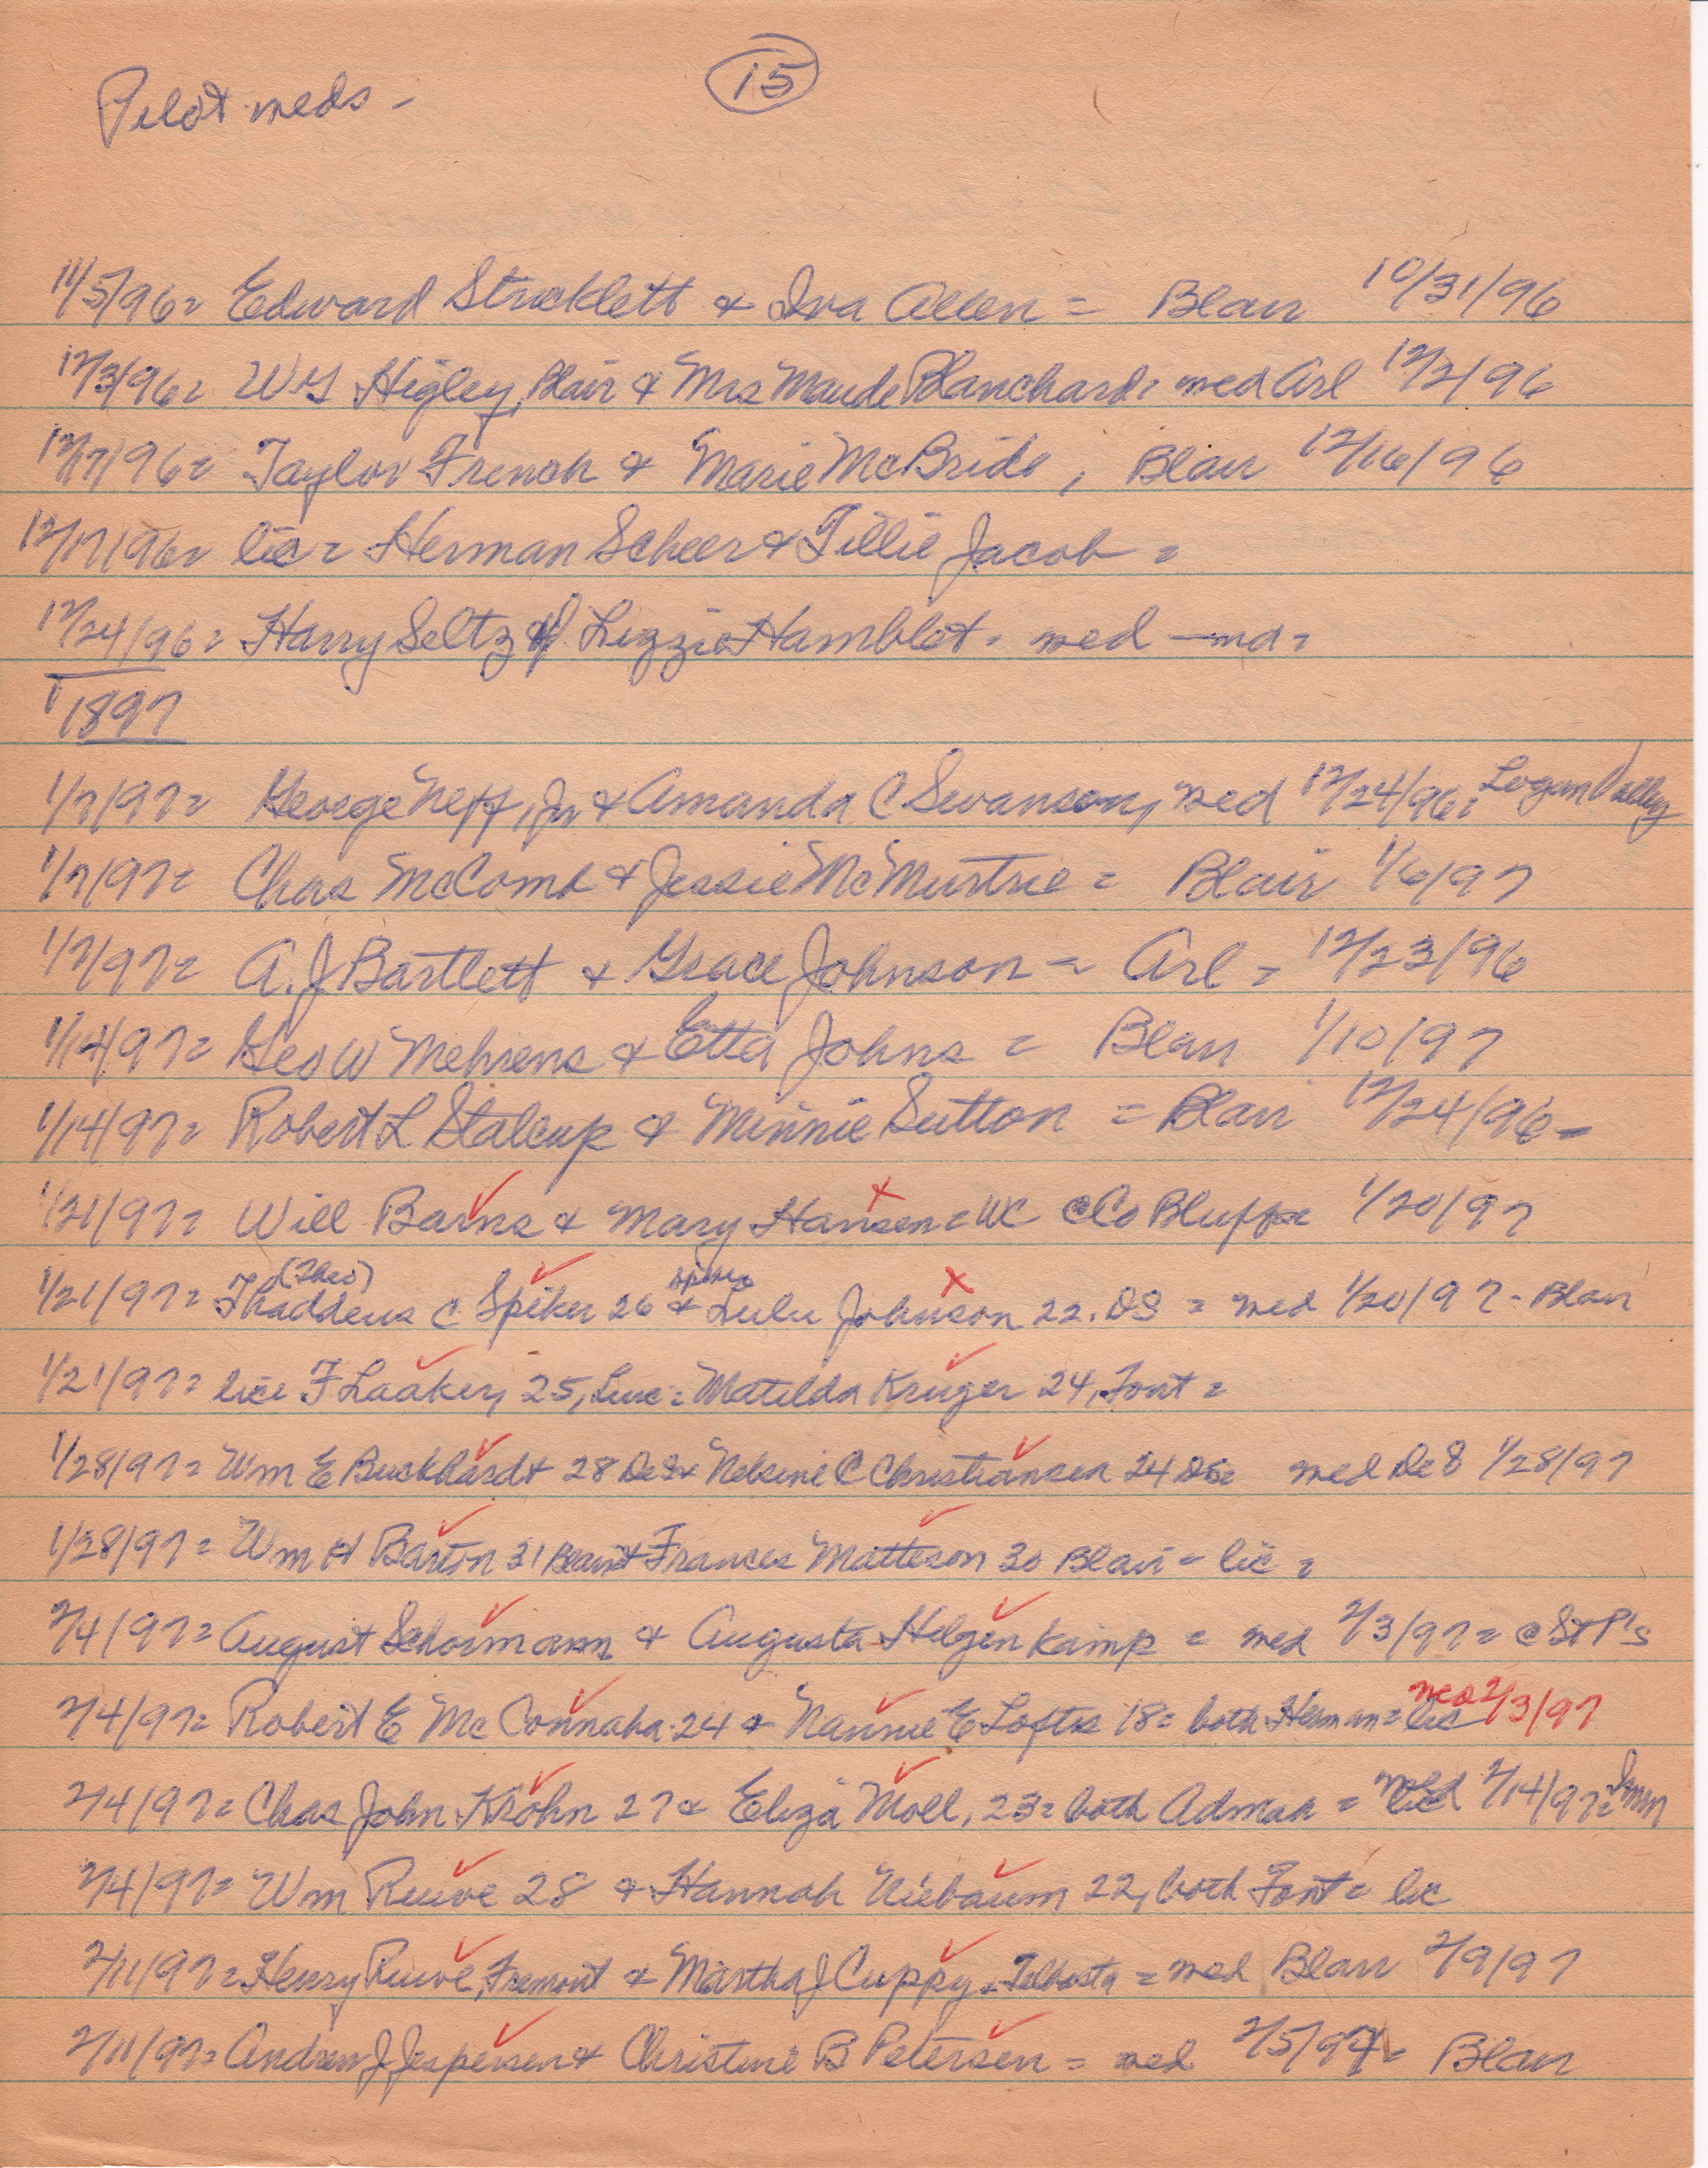 15
Pilot weds -
11/5/96= Edward Stricklett & Iva Allen = Blair 10/31/96
12/3/96= WG Higley, Blair & Mrs Maude Blanchard= wed Arl 12/2/96
12/17/96= Taylor French & Marie McBride, Blair 12/16/96
12/17/96= lic= Herman Scheer & Tillie Jacob =
12/24/96= Harry Seltz & Lizzie Hamblet= wed — nd=
1897
1/7/97= George Neff, Jr & Amanda C Swanson, wed 12/24/96= Logan Valley
1/7/97= Chas McComb & Jessie McMurtrie = Blair 1/6/97
1/7/97= A.J Bartlett & Grace Johnson = Arl = 12/23/96
1/14/97= Geo W Mehrens & Etta Johns = Blair 1/10/97
1/14/97= Robert L Stalcup & Minnie Sutton = Blair 12/24/96-
1/21/97= Will Barns & Mary Hansen= WC Co Bluffs 1/20/97
(Theo) Spiker
1/21/97= Thaddeus C Spiker 26 & Lulu Johnson 22. DS = wed 1/20/97- Blair
1/21/97= lic= F Laaker, 25, = Matilda Kruger 24, Font =
1/28/97= Wm E Buckhardt 28 & Nelsine C Christiansen 24 wed 1/28/97
1/28/97= Wm H Barton 31 Blair & Frances Matteson 30 Blair = lic =
2/4/97= August Schormann & Augusta Hilgenkamp = wed 2/3/97= @ St P's
2/4/97= Robert E McConnaha 24 & Nannie E Loftis 18= both Herman= lic wed 2/3/97
2/4/97= Chas John Krohn 27 & Eliza Moll, 23= both Admah = lic wed 2/14/97=
2/4/97= Wm Ruwe 28 & Hannah Niebaum 22, both Font= lic
2/11/97= Henry Ruwe, Fremont & Martha J Cuppy, Telbasta = wed Blair 2/9/97
2/11/97= Andrew J Jespersen & Christine B Petersen = wed 2/5/97= Blair